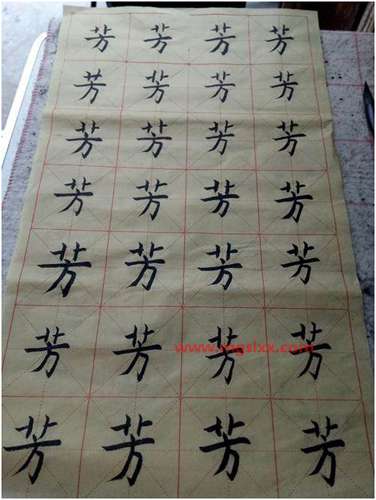 芳 芳 芳 芳
芳 芳 芳 芳
芳 芳 芳 芳
芳 芳 芳 芳
芳 芳 芳 芳
芳 芳 芳 芳
芳 芳 芳 芳